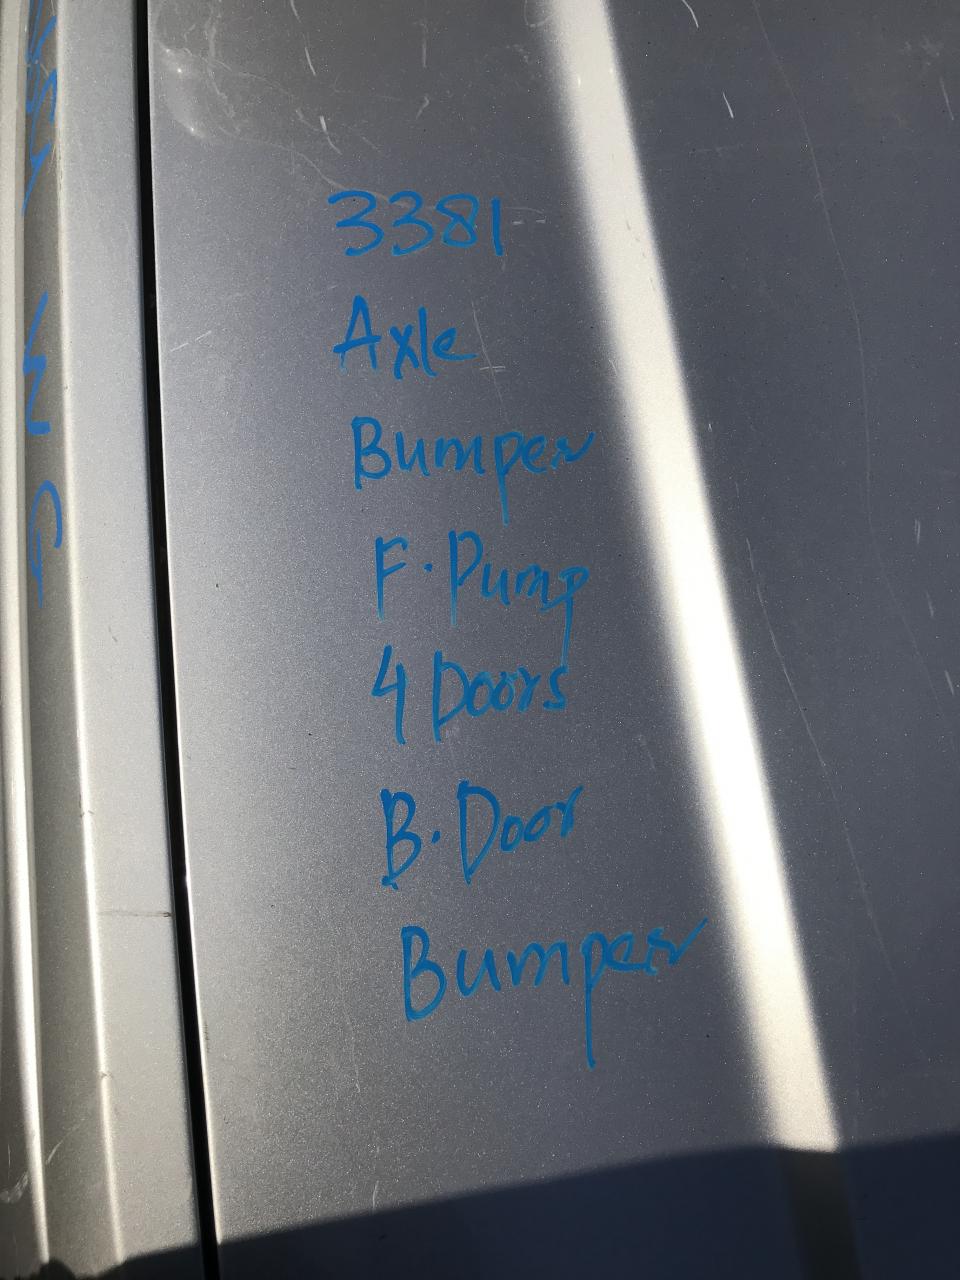 3381
Axle
Bumper
F. Pump
4 Doors
B. Door
Bumper